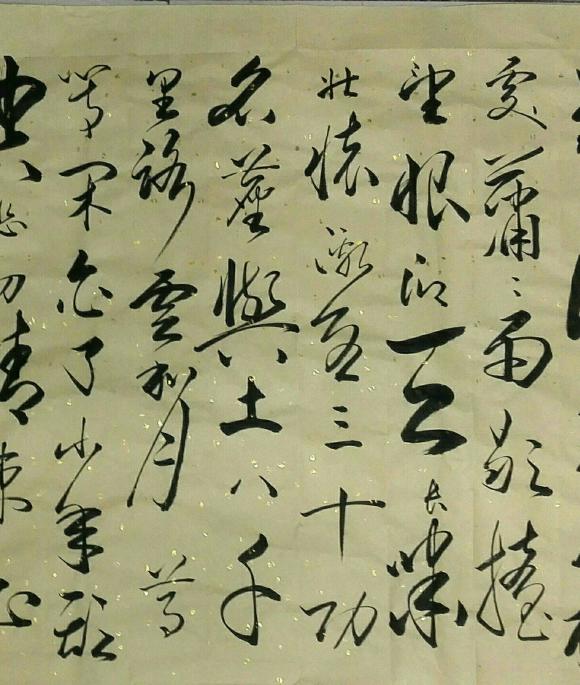 處蕭〻雨歇擡
望眼仰天長嘯
壯懷激烈三十功
名塵與土八千
里路雲和月莫
等閑白了少年頭
空悲切靖康恥